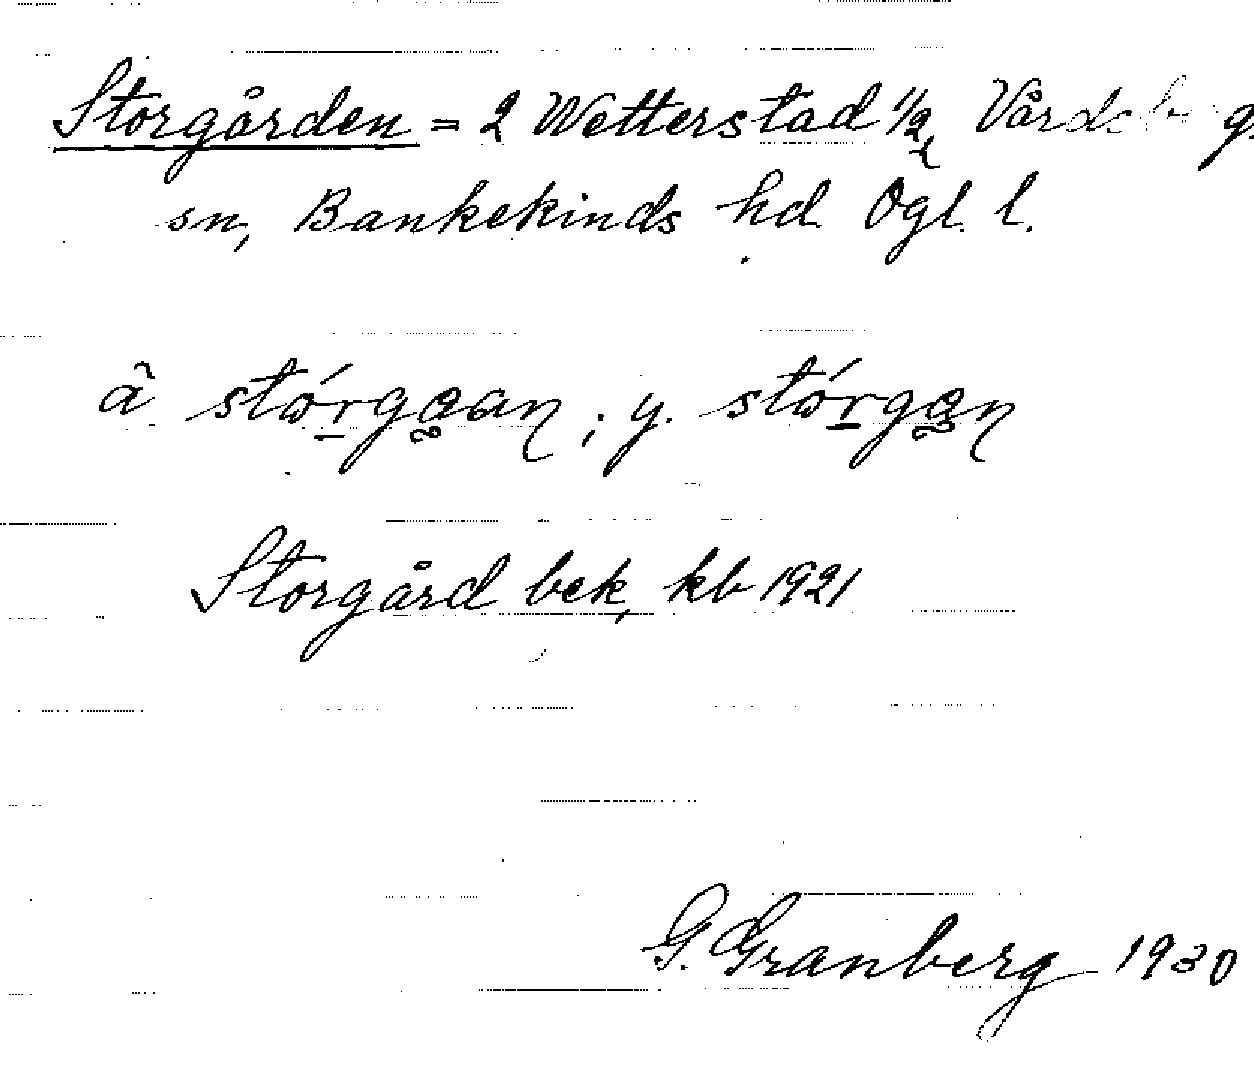 Storgården = 2 Wetterstad 1/2, Vårdsbergs
sn, Bankekinds hd Ögl. l.
â stórgaan ; y. stórgan
Storgård bek, kb 1921
G. Granberg 1930